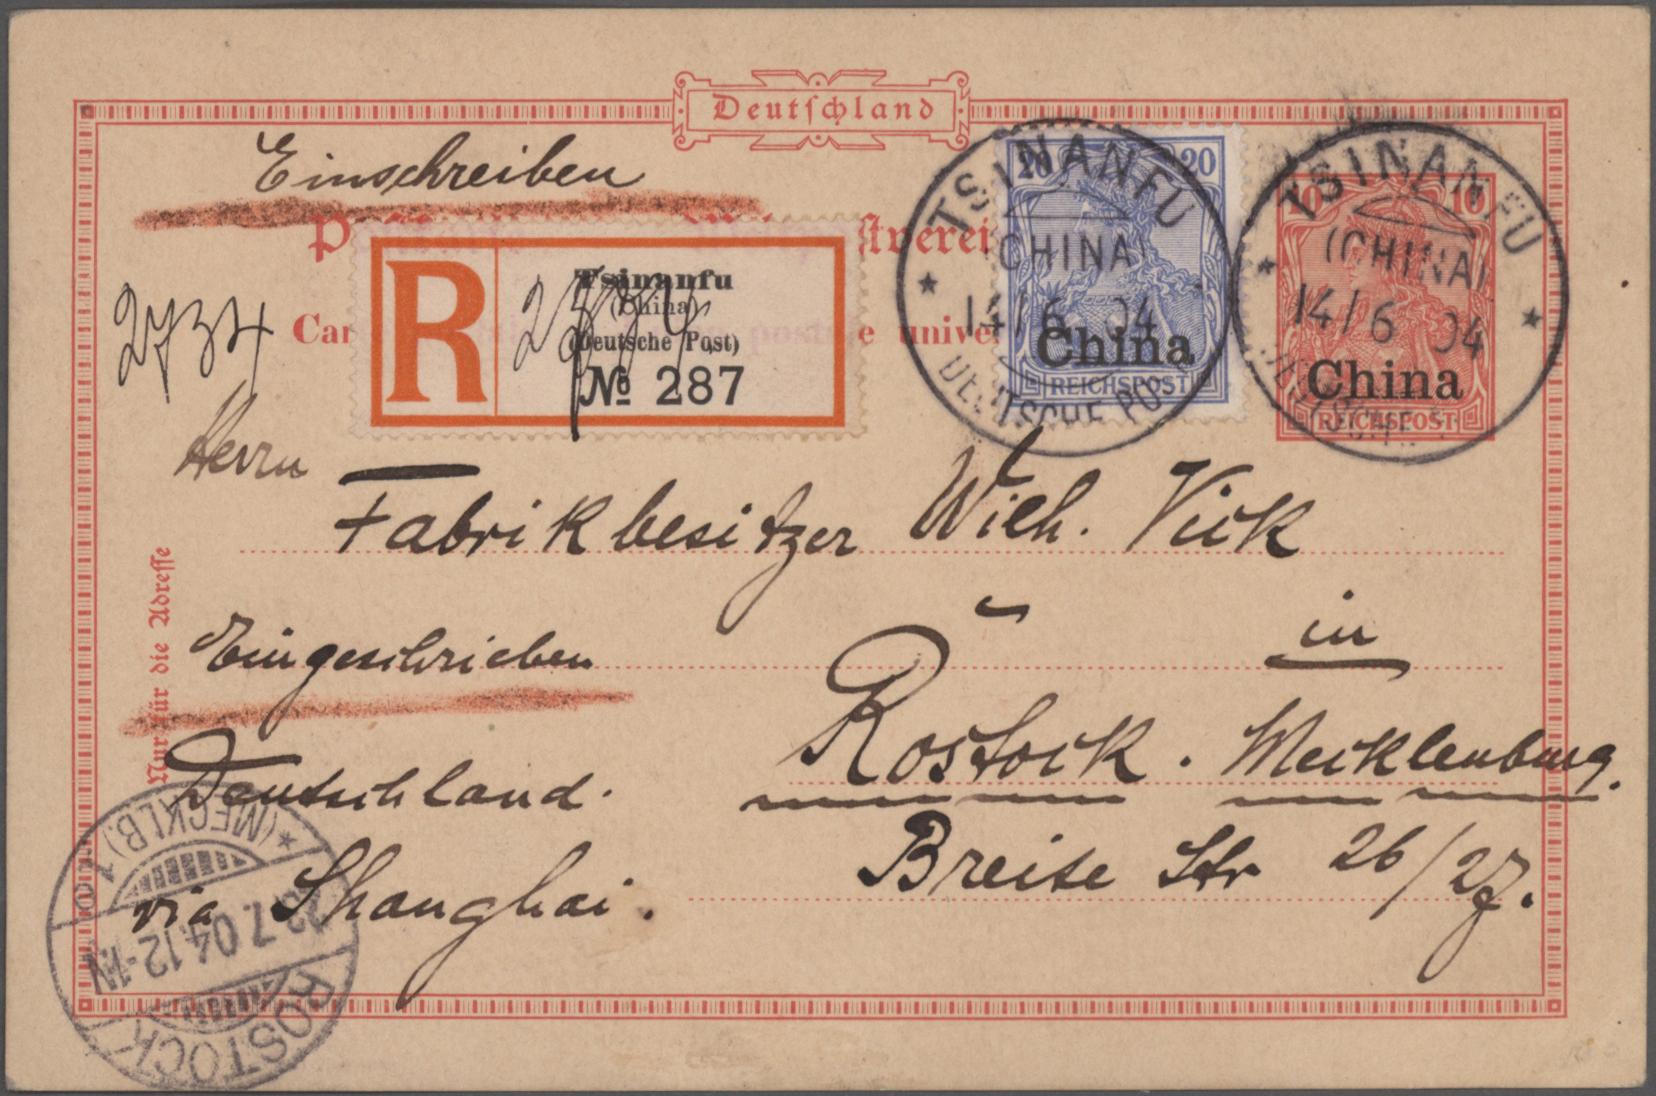 Deutschland
Einschreiben
R
Tsinanfu
(China)
(Deutsche Post)
№ 287
2734
20 20
China
REICHSPOST
TSINANFU
(CHINA)
14/6 04
DEUTSCHE POST
10 10
China
REICHSPOST
TSINANFU
(CHINA)
14/6 04
DEUTSCHE
Herrn
Fabrikbesitzer Wilh. Vick
in
Eingeschrieben
Rostock. Mecklenburg.
Deutschland.
Breite Str 26/27.
via Shanghai.
Nur für die Adresse
ROSTOCK
7.04.12-1N
(MECKLB.) 1